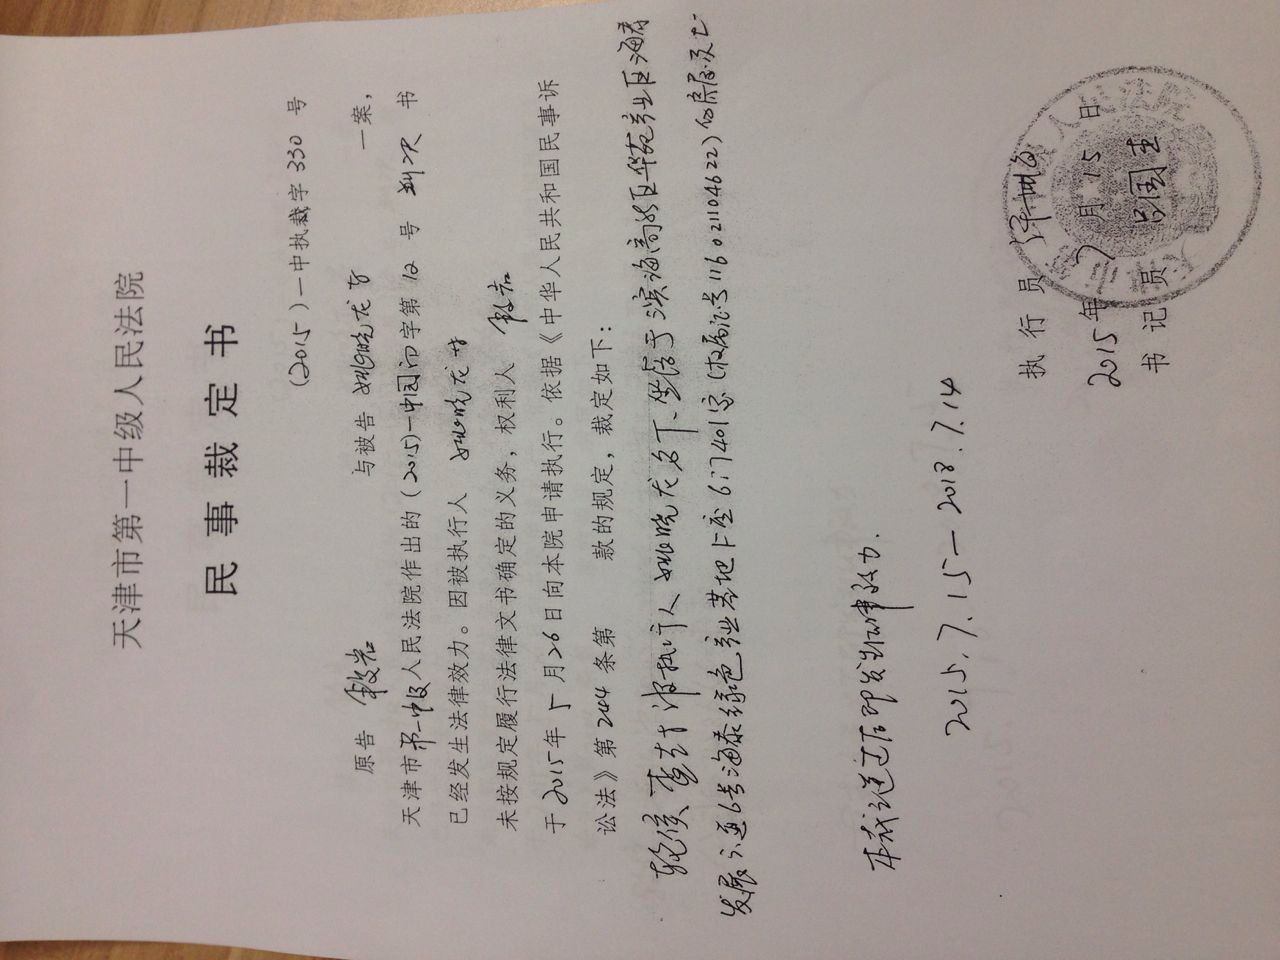 天津市第一中级人民法院
民事裁定书
(2015)一中执裁字330号
原告 与被告 姚晓龙等 一案，
天津市第一中级人民法院作出的(2015)一中 字第12号 判决 书
已经发生法律效力。因被执行人 姚晓龙等
未按规定履行法律文书确定的义务，权利人
于2015年5月26日向本院申请执行。依据《中华人民共和国民事诉
讼法》第244条第 款的规定，裁定如下：
轮侯查封被执行人姚晓龙名下、坐落于滨海高新区华苑产业区海泰
发展六道6号海泰绿色产业基地 座6门401室(权属证号116021104622)的房屋及土
本裁定送达后即发生法律效力.
2015.7.15—2018.7.14
执行员
2015年7月15日
书记员 吕国圭